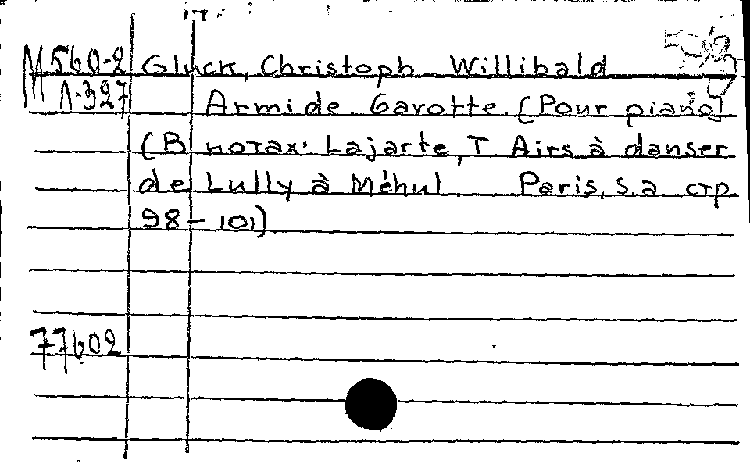 M 560-2 Gluck, Christoph Willibald
Л-327 Armide. Gavotte. [Pour piano]
(В нотах: Lajarte, T Airs à danser
de Lully à Méhul. Paris, s.a стр.
98-101)
77602